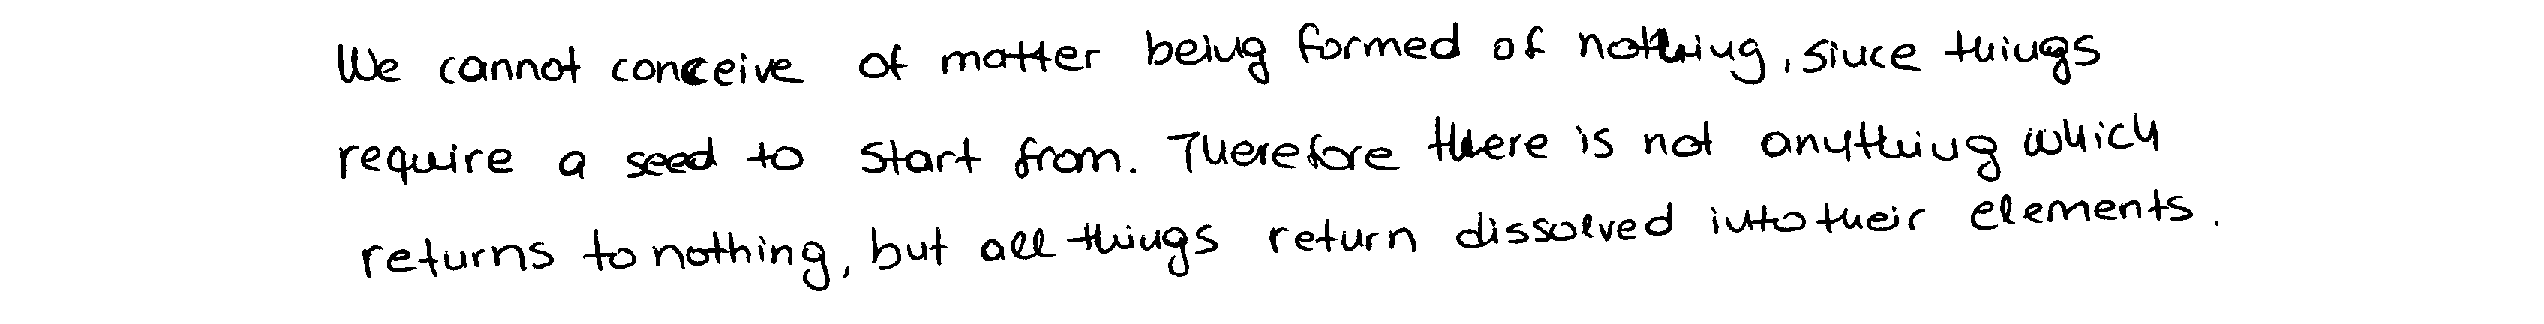 We cannot conceive of matter being formed of nothing, since things
require a seed to start from. Therefore there is not anything which
returns to nothing, but all things return dissolved into their elements.